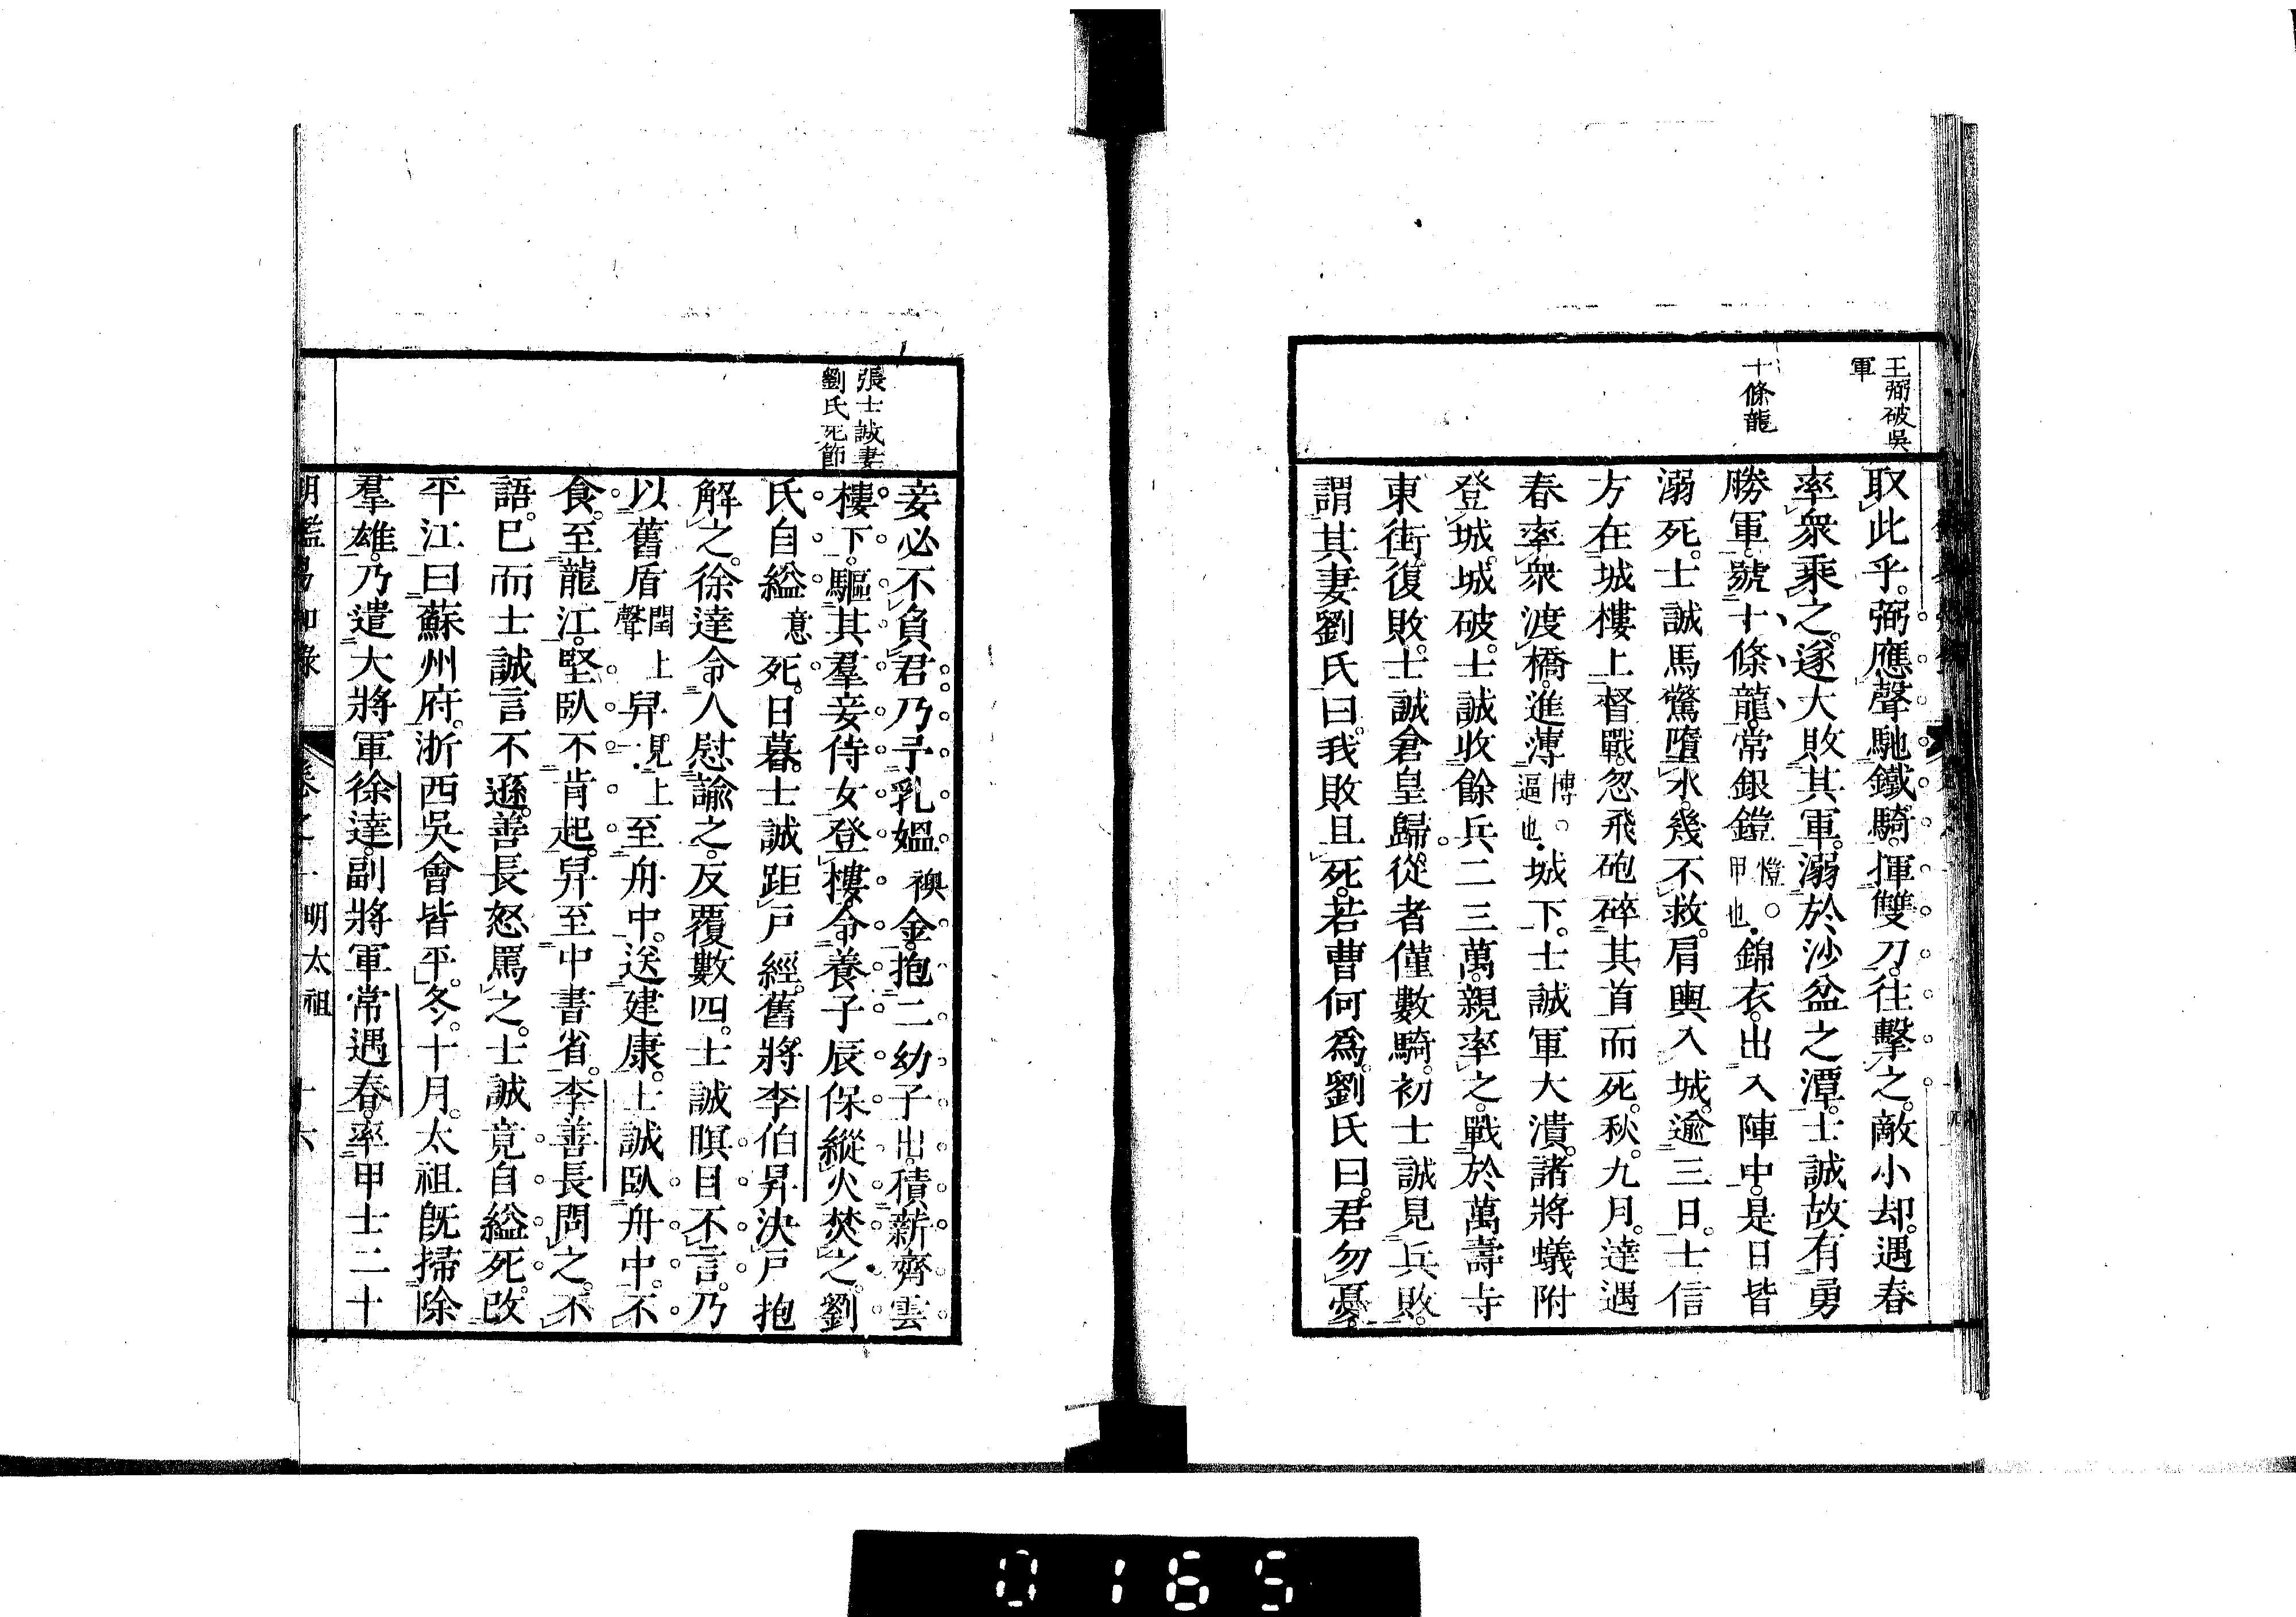 王弼破吳
軍
十條龍
取此乎。弼應聲馳鐵騎。揮雙刀。往擊之。敵小却。遇春
率衆乘之。遂大敗其軍。溺於沙盆之潭。士誠故有勇
勝軍。號十條龍。常銀鎧鎧。甲也。錦衣。出入陣中。是日皆
溺死。士誠馬驚墮水。幾不救。肩輿入城。逾三日。士信
方在城樓上督戰。忽飛砲碎其首而死。秋。九月。達遇
春率衆渡橋。進薄博。逼也。城下。士誠軍大潰。諸將蟻附
登城。城破。士誠收餘兵二三萬。親率之。戰於萬壽寺
東街。復敗。士誠倉皇歸。從者僅數騎。初士誠見兵敗。
謂其妻劉氏曰。我敗且死。若曹何爲。劉氏曰。君勿憂。
張士誠妻
劉氏死節
妾必不負君。乃予乳媼襖金。抱二幼子出。積薪齊雲
樓下。驅其羣妾侍女登樓。令養子辰保縱火焚之。劉
氏自縊意死。日暮。士誠距戶經。舊將李伯昇決戶抱
解之。徐達令人慰諭之。反覆數四。士誠瞑目不言。乃
以舊盾閏上聲舁。見上至舟中。送建康。士誠臥舟中。不
食。至龍江。堅臥不肯起。舁至中書省。李善長問之。不
語。已而士誠言不遜。善長怒罵之。士誠竟自縊死。改
平江曰蘇州府。浙西吳會皆平。冬。十月。太祖旣掃除
羣雄。乃遣大將軍徐達。副將軍常遇春。率甲士二十
明鑑易知錄 卷之一 明太祖 十六
0165